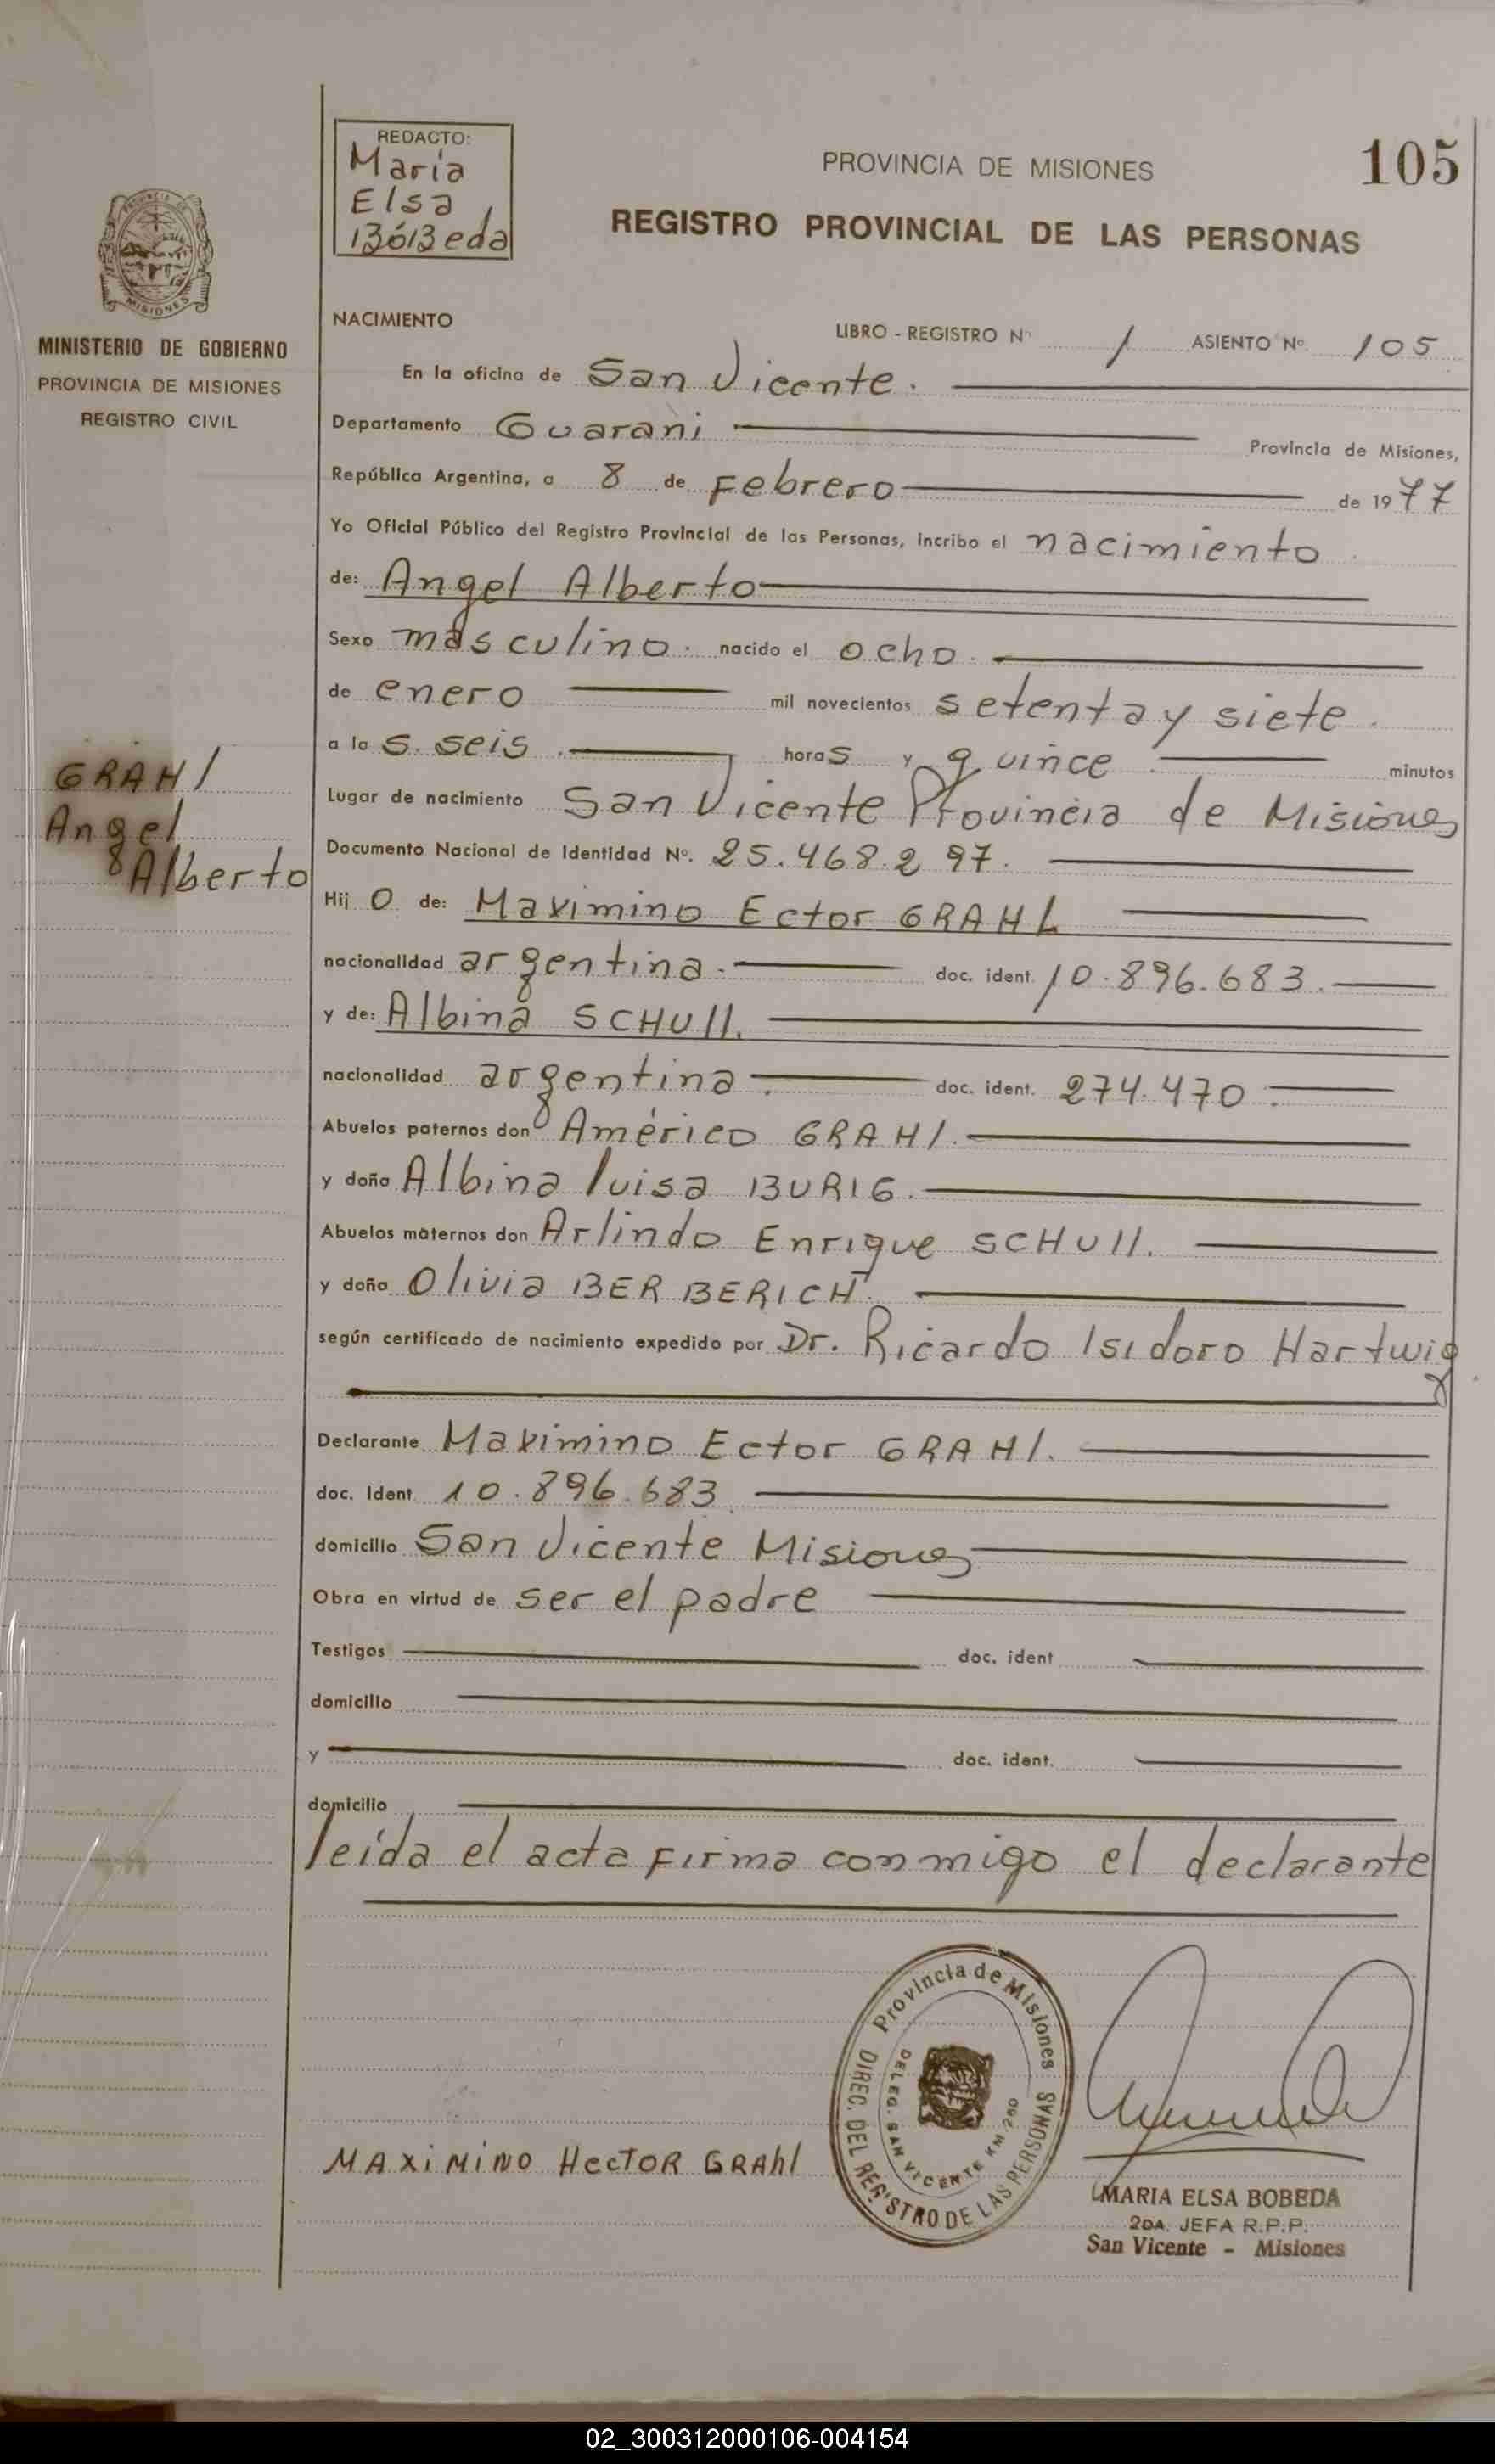 REDACTO:
María
Elsa
Bóbeda
PROVINCIA DE MISIONES
105
REGISTRO PROVINCIAL DE LAS PERSONAS
PROVINCIA DE
MISIONES
MINISTERIO DE GOBIERNO
PROVINCIA DE MISIONES
REGISTRO CIVIL
NACIMIENTO
LIBRO - REGISTRO Nº 1 ASIENTO Nº 105
En la oficina de San Vicente.
Departamento Guaraní Provincia de Misiones,
República Argentina, a 8 de Febrero de 1977
Yo Oficial Público del Registro Provincial de las Personas, incribo el nacimiento
de: Angel Alberto
Sexo masculino. nacido el ocho.
de enero mil novecientos setenta y siete.
a las. seis. horas y quince. minutos
GRAHl
Angel
Alberto
Lugar de nacimiento San Vicente Provincia de Misiones
Documento Nacional de Identidad Nº. 25.468.297.
Hijo de: Maximino Ector GRAHL
nacionalidad argentina. doc. ident. 10.896.683.
y de: Albina SCHUll.
nacionalidad argentina. doc. ident. 274.470.
Abuelos paternos don Américo GRAHl.
y doña Albina luisa BURIG.
Abuelos maternos don Arlindo Enrique SCHUll.
y doña Olivia BERBERICH.
según certificado de nacimiento expedido por Dr. Ricardo Isidoro Hartwig
Declarante Maximino Ector GRAHl.
doc. Ident 10.896.683.
domicilio San Vicente Misiones
Obra en virtud de ser el padre
Testigos doc. ident
domicilio
y doc. ident.
domicilio
leída el acta Firma conmigo el declarante
Provincia de Misiones
DIREC. DEL REGISTRO DE LAS PERSONAS
DELEG. SAN VICENTE KM 260
MAXiMiNO HecTOR GRAhl
MARIA ELSA BOBEDA
2DA. JEFA R.P.P.
San Vicente - Misiones
02_300312000106-004154